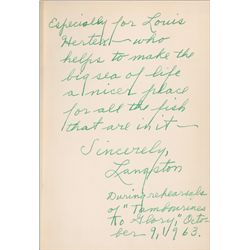 Especially for Louis
Herten — who
helps to make the
big sea of life
a nicer place
for all the fish
that are in it —
Sincerely,
Langston
During rehearsals
of "Tambourines
to Glory," Octo-
ber 9, 1963.